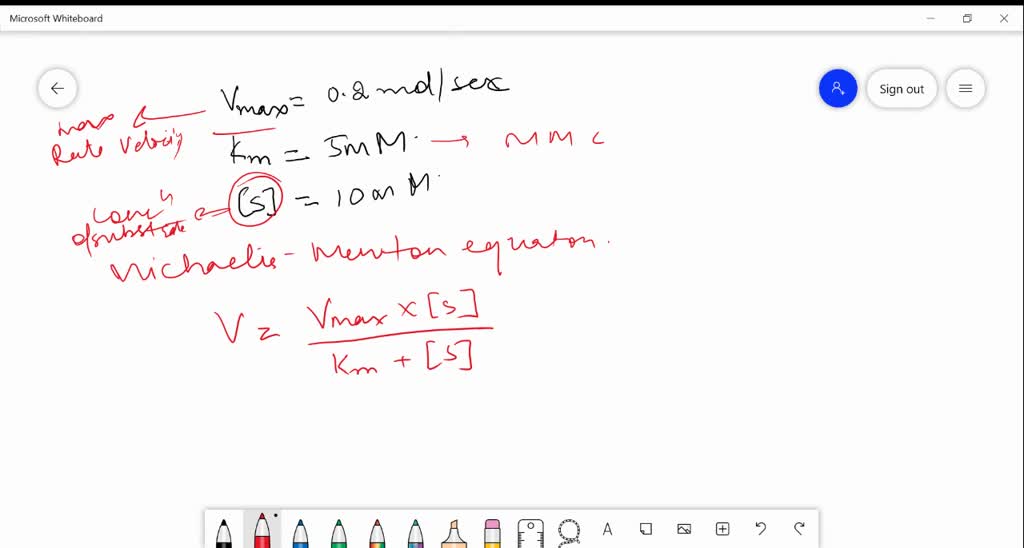 Microsoft Whiteboard
Sign out
Vmax = 0.2 mol/sec
max
Rate Velocity
Km = 5mM. → MMC
[S] = 10 mM.
conc"
of substrate
Michaelis - Menton equation.
V = Vmax x [S]
Km + [S]
A